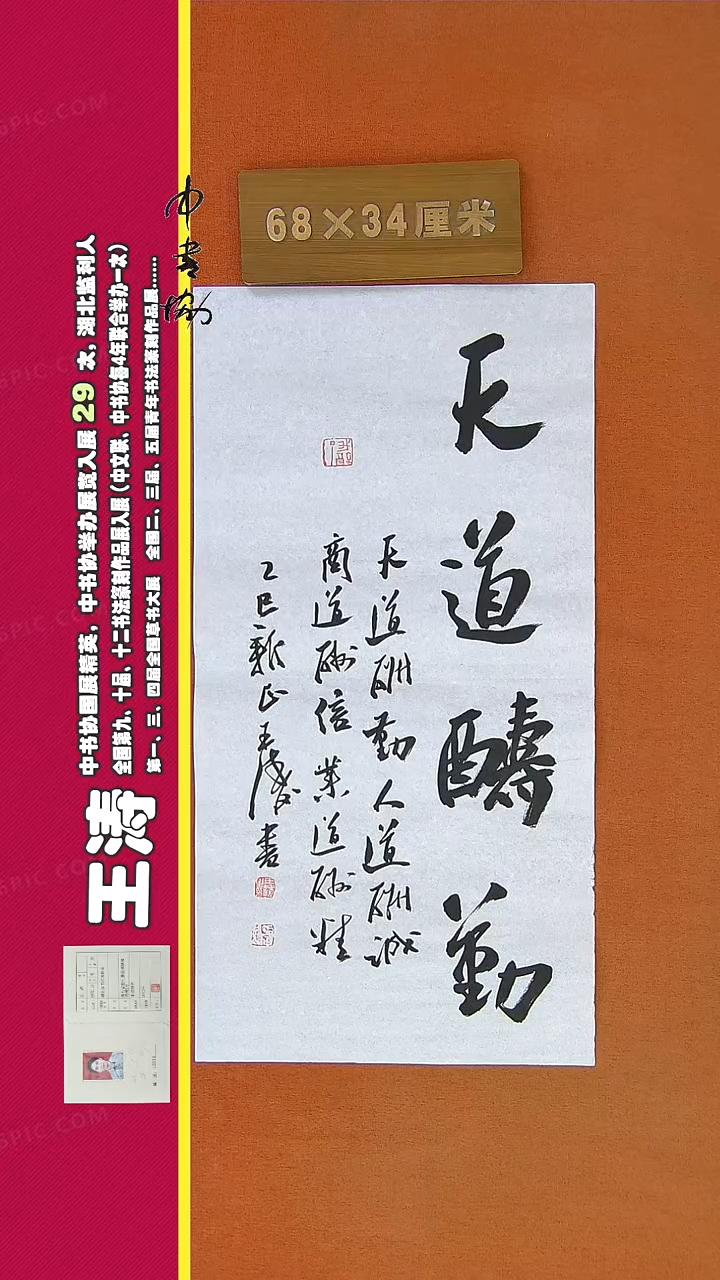 68×34厘米
天
道
酬
勤
天道酬勤人道酬诚
商道酬信业道酬精
乙巳新正王涛书
中书协
王涛
中书协国展精英，中书协举办展览入展 29 次，湖北监利人
全国第九、十届、十二书法篆刻作品展入展（中文联、中书协每4年联合举办一次）
第一、三、四届全国草书大展 全国二、三届、五届青年书法篆刻作品展……